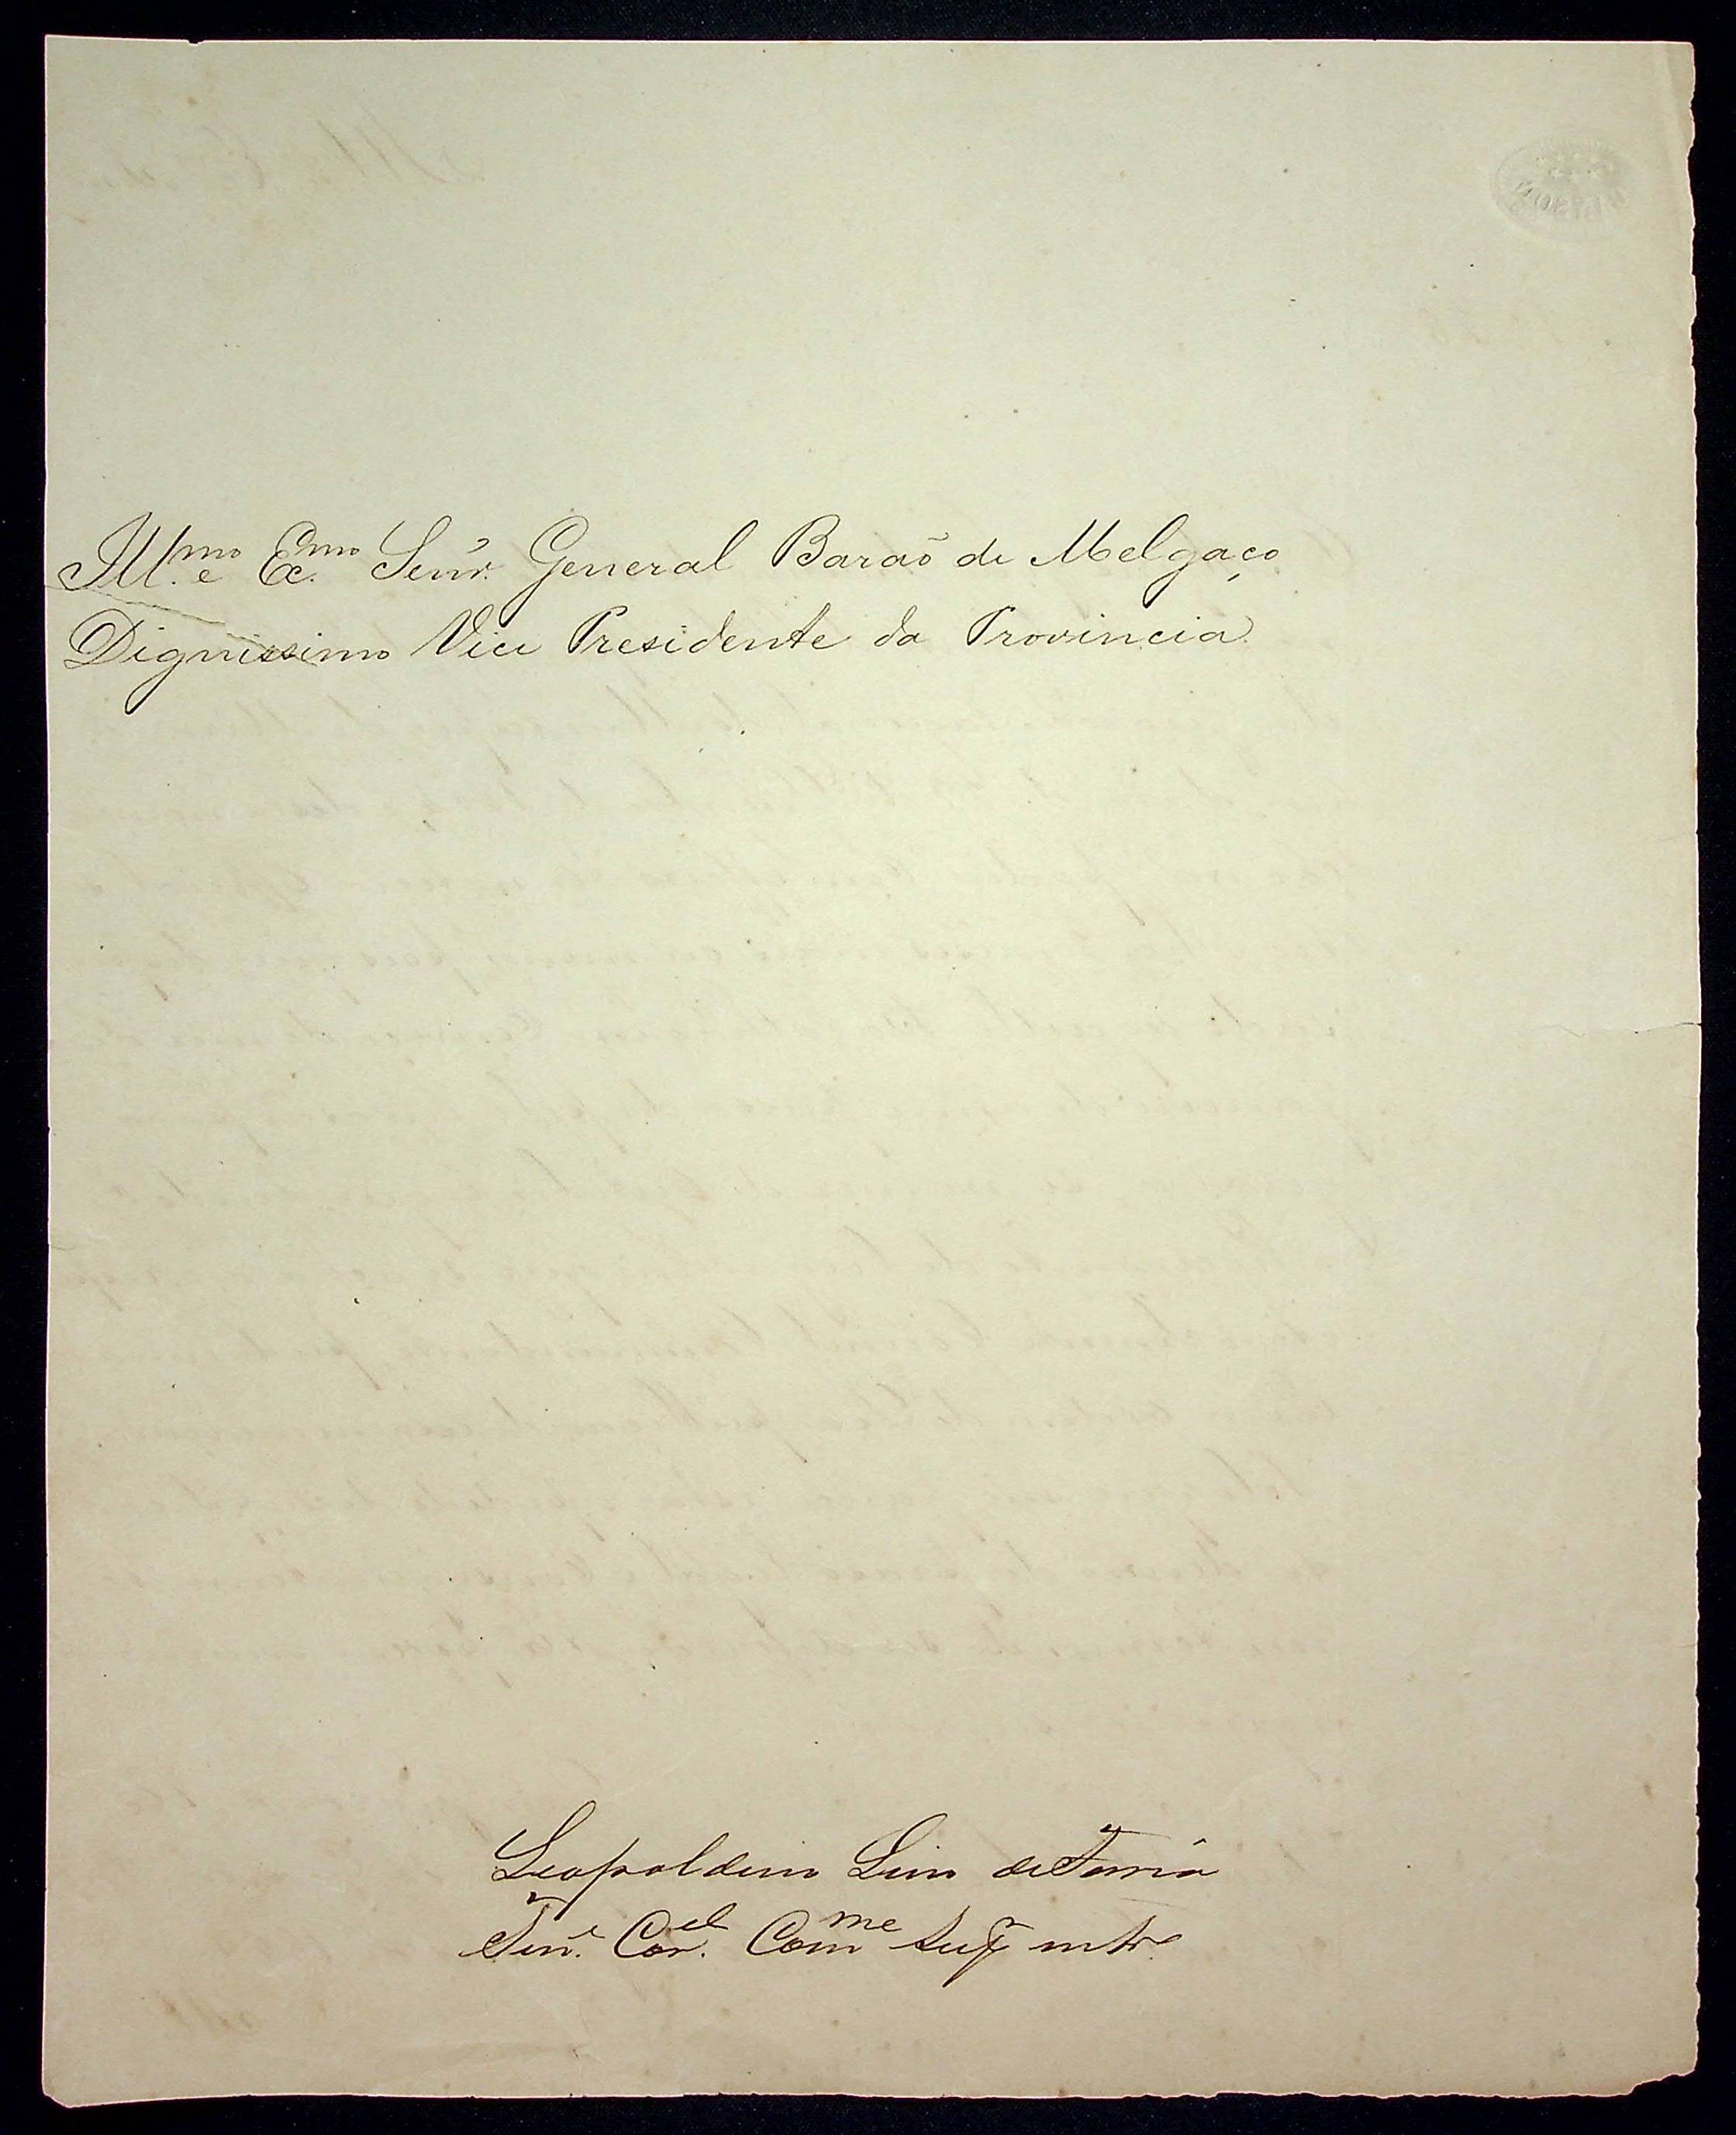 Ill.mo e Ex.mo Senr. General Barão de Melgaço
Digníssimo Vice Presidente da Provincia
Leopoldino Lino de Faria
Ten.e Cor.el Com.me